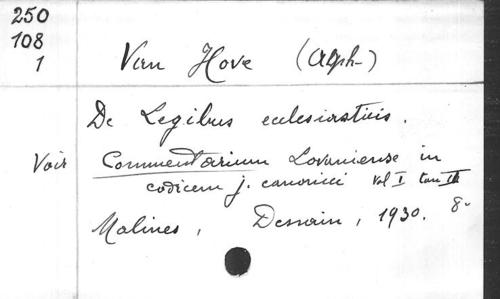 250
108
1
Van Hove (Alph-)
De Legibus ecclesiasticis.
Voir Commentarium Lovaniense in
codicem j. canonici vol I tom II
Malines, Dessain, 1930. 8-